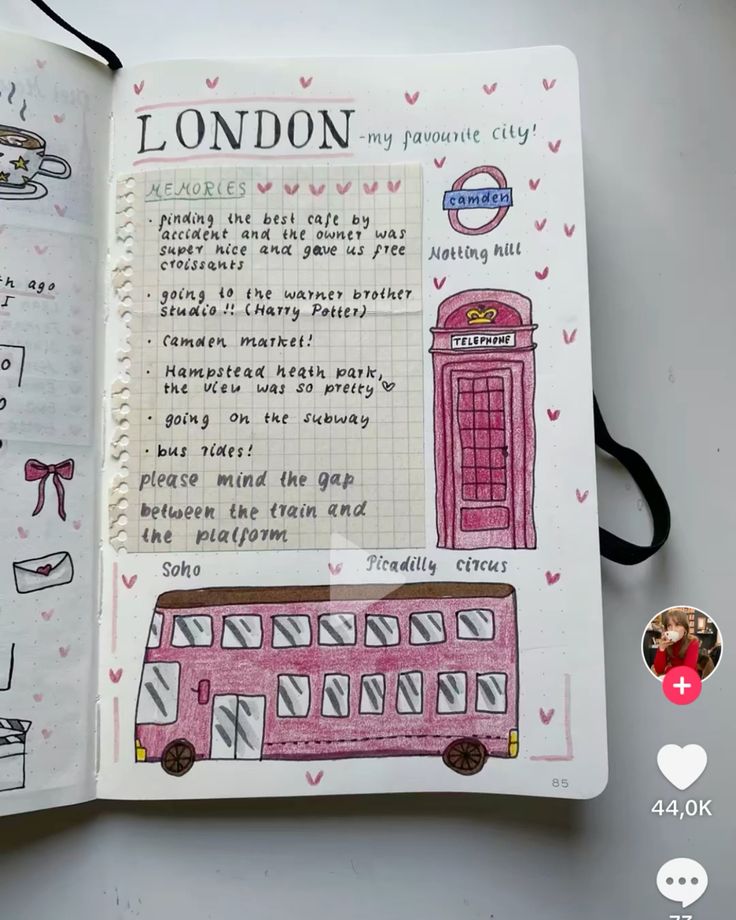 LONDON -my favourite city!
MEMORIES
camden
Notting hill
• finding the best cafe by
accident and the owner was
super nice and gave us free
croissants
• going to the warner brother
studio!! (Harry Potter)
• camden market!
• Hampstead heath park,
the view was so pretty
• going on the subway
• bus rides!
please mind the gap
between the train and
the platform
TELEPHONE
Soho
Picadilly circus
85
h ago
I
44,0K